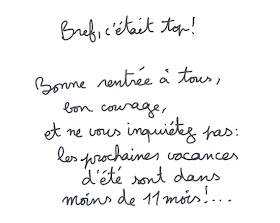 Bref, c'était top!
Bonne rentrée à tous,
bon courage,
et ne vous inquiétez pas:
les prochaines vacances
d'été sont dans
moins de 11 mois!...